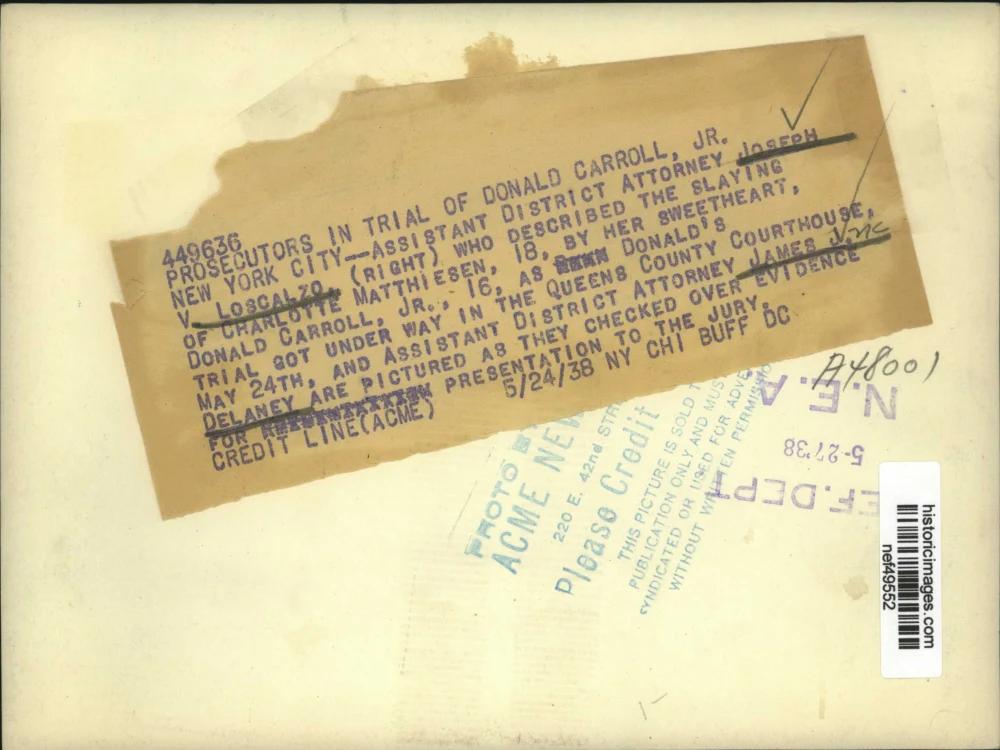 449636
PROSECUTORS IN TRIAL OF DONALD CARROLL, JR.
NEW YORK CITY--ASSISTANT DISTRICT ATTORNEY JOSEPH
V. LOSCALZO, (RIGHT) WHO DESCRIBED THE SLAYING
OF CHARLOTTE MATTHIESEN, 18, BY HER SWEETHEART,
DONALD CARROLL, JR., 16, AS DONALD'S
TRIAL GOT UNDER WAY IN THE QUEENS COUNTY COURTHOUSE,
MAY 24TH, AND ASSISTANT DISTRICT ATTORNEY JAMES J.
DELANEY ARE PICTURED AS THEY CHECKED OVER EVIDENCE
FOR PRESENTATION TO THE JURY.
CREDIT LINE(ACME) 5/24/38 NY CHI BUFF DC
A48001
N.E.A
5-27'38
EF. DEPT
PHOTO
ACME NEW
220 E. 42nd STR
Please Credit
THIS PICTURE IS SOLD
PUBLICATION ONLY AND MUS
SYNDICATED OR USED FOR ADVE
WITHOUT WRITTEN PERMISSIO
historicimages.com
nef49552